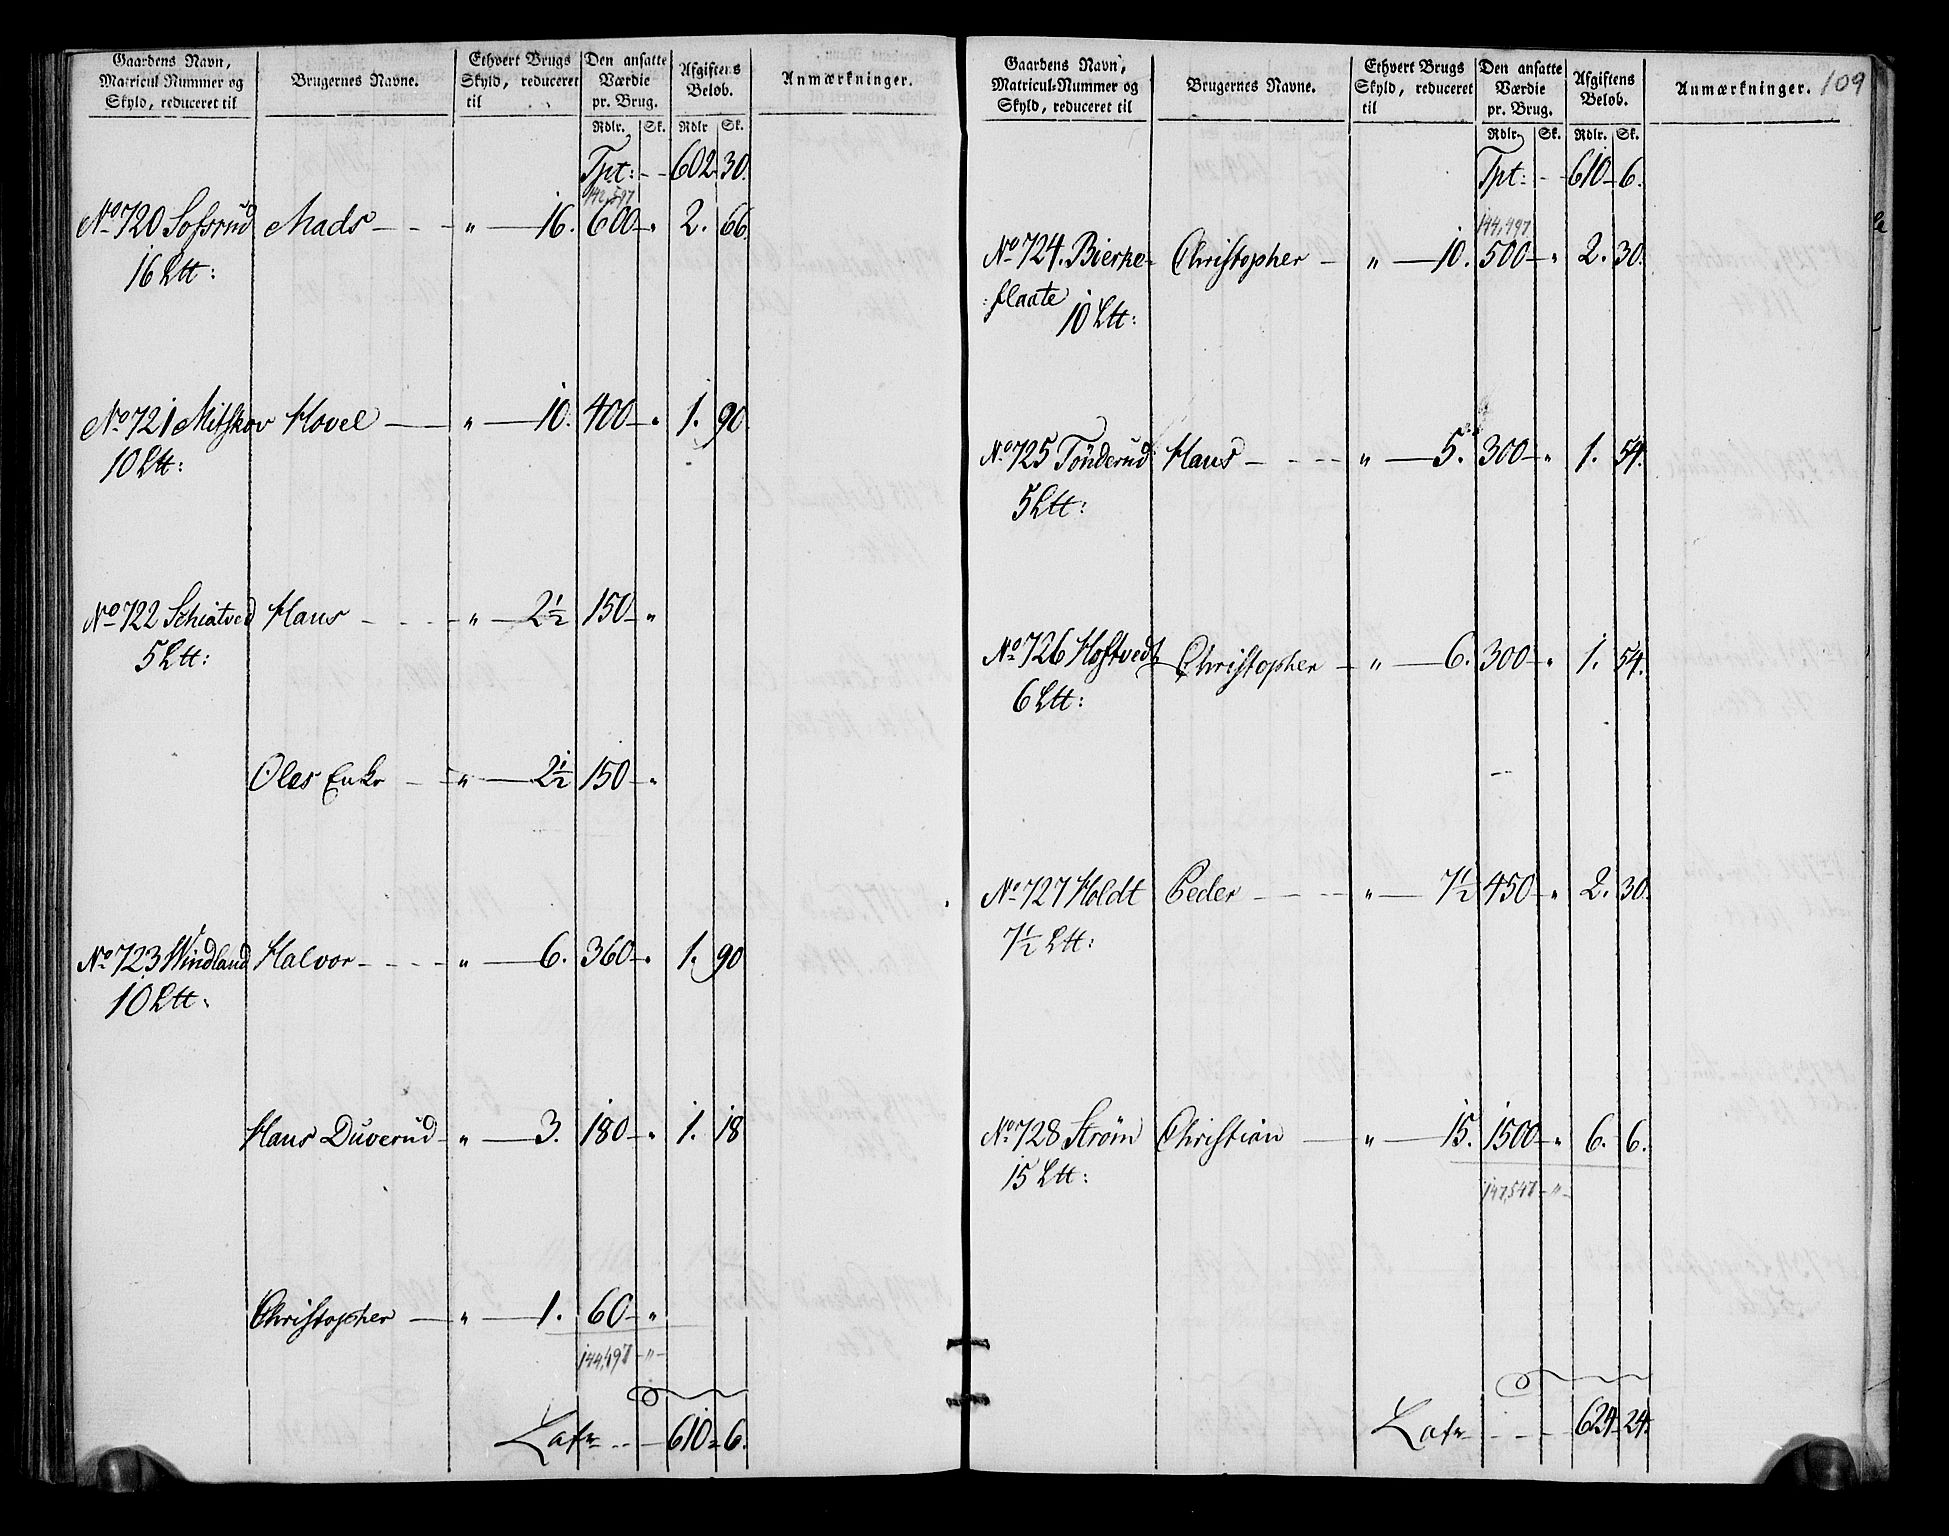 Gaardens Navn, Matricul Nummer og Skyld, reduceret til | Brugernes Navne. | Ethvert Brugs Skyld, reduceret til | Den ansatte Værdie pr. Brug. | Afgiftens Beløb. | Anmærkninger.
Rdlr. | Sk. | Rdlr | Sk.
Tpt: - - 602 - 30.
142,597
No 720 Sofsrud Mads - - - " - 16. 600 - " 2. 66.
16 Ltt:
No 721 Mitskov Hovel - " - 10. 400 - " 1. 90
10 Ltt:
No 722 Schiatved Hans - - - - " - 2½ 150 - "
5 Ltt:
Oles Enke - - " - 2½ 150 - "
No 723 Windland Halvor - - - - " - 6. 360 - " 1. 90
10 Ltt:
Hans Duverud - " - 3. 180 - " 1. 18
Christopher - " - 1. 60 - "
144,497 - " -
Latr - - - 610 - 6.
109
Gaardens Navn, Matricul-Nummer og Skyld, reduceret til | Brugernes Navne. | Ethvert Brugs Skyld, reduceret til | Den ansatte Værdie pr. Brug. | Afgiftens Beløb. | Anmærkninger.
Rdlr. | Sk. | Rdlr. | Sk.
Tpt: - - 610 - 6.
144,497
No 724. Bierke- Christopher - " - 10. 500 - " 2. 30.
:flaate
10 Ltt:
No 725 Tönderud Hans - - - - " - 5. 300 - " 1. 54.
5 Ltt:
No 726 Hoftvedt Christopher - " - 6. 300 - " 1. 54.
6 Ltt:
No 727 Holdt Peder - - - - " - 7½ 450 - " 2. 30.
7½ Ltt:
No 728 Strøm Christian - " - 15. 1500 - " 6. 6.
15 Ltt:
147,547 - " -
Latr - - - 624 - 24.